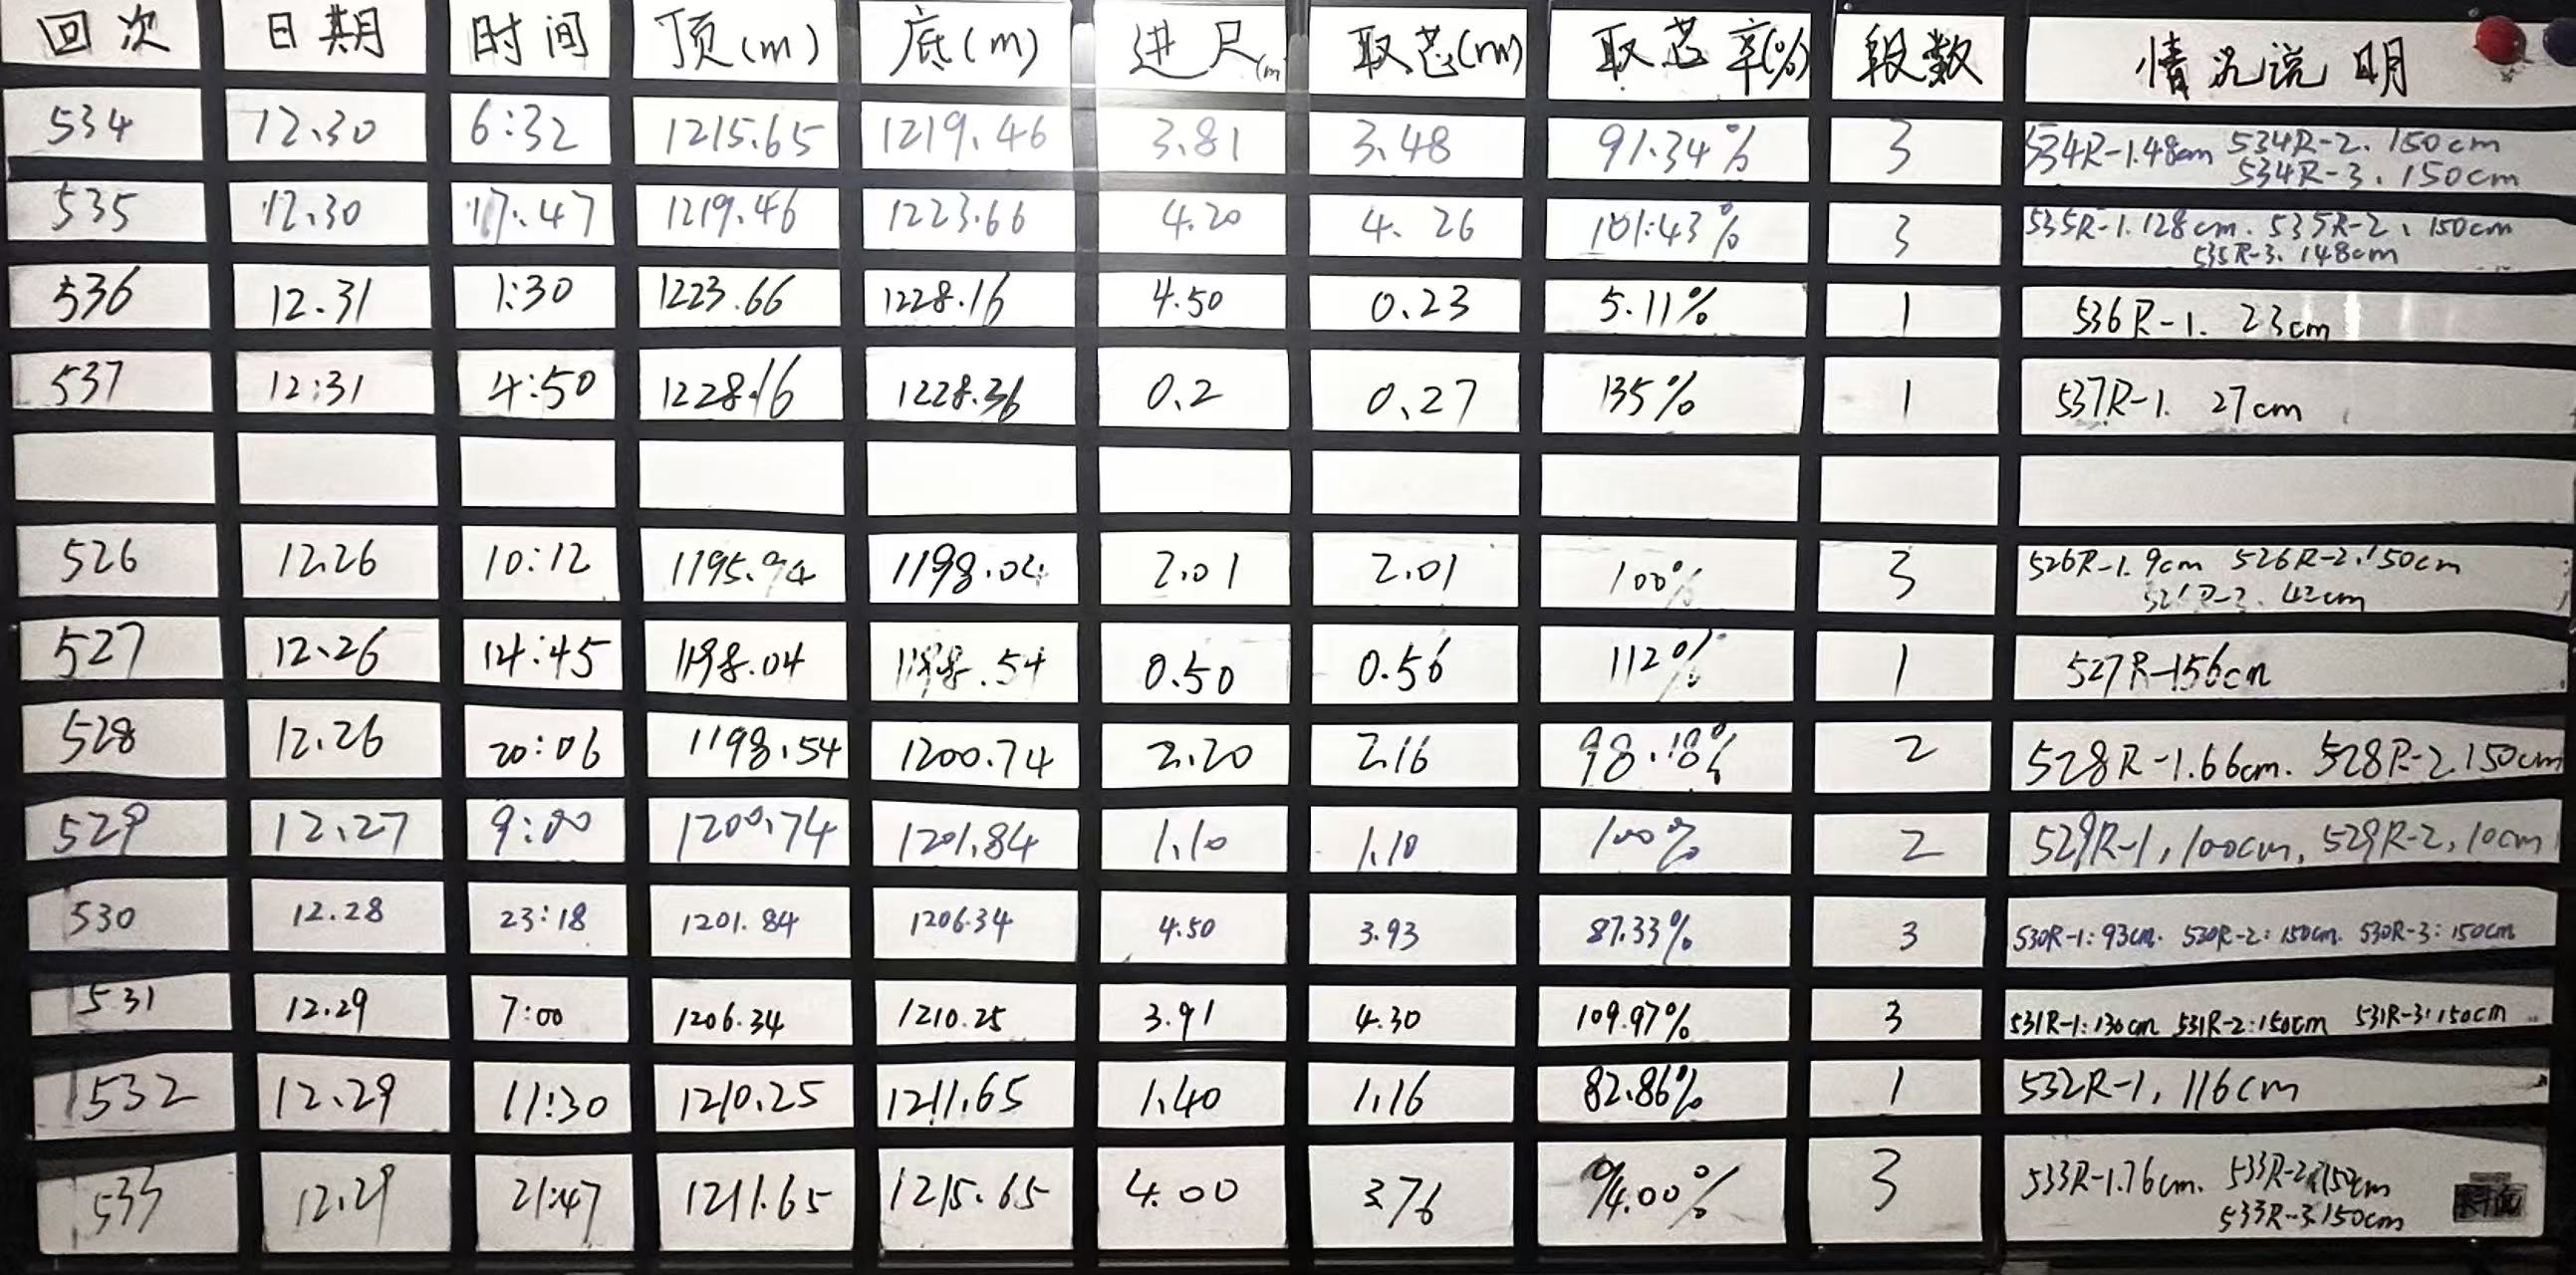 回次 日期 时间 顶(m) 底(m) 进尺(m) 取芯(m) 取芯率(%) 段数 情况说明
534 12.30 6:32 1215.65 1219.46 3.81 3.48 91.34% 3 534R-1.48cm 534R-2.150cm
534R-3.150cm
535 12.30 17:47 1219.46 1223.66 4.20 4.26 101.43% 3 535R-1.128cm. 535R-2、150cm
535R-3.148cm
536 12.31 1:30 1223.66 1228.16 4.50 0.23 5.11% 1 536R-1. 23cm
537 12:31 4:50 1228.16 1228.36 0.2 0.27 135% 1 537R-1. 27cm
526 12.26 10:12 1195.94 1198.04 2.01 2.01 100% 3 526R-1.9cm 526R-2.150cm
42cm
527 12.26 14:45 1198.04 1198.54 0.50 0.56 112% 1 527R-156cm
528 12.26 20:06 1198.54 1200.74 2.20 2.16 98.18% 2 528R-1.66cm. 528R-2.150cm
529 12.27 9:00 1200.74 1201.84 1.10 1.10 100% 2 529R-1,100cm, 529R-2,10cm
530 12.28 23:18 1201.84 1206.34 4.50 3.93 87.33% 3 530R-1:93cm. 530R-2:150cm. 530R-3:150cm
531 12.29 7:00 1206.34 1210.25 3.91 4.30 109.97% 3 531R-1:130cm 531R-2:150cm 531R-3:150cm
532 12.29 11:30 1210.25 1211.65 1.40 1.16 82.86% 1 532R-1,116cm
533 12.29 21:47 1211.65 1215.65 4.00 3.76 94.00% 3 533R-1.76cm. 533R-2.150cm
533R-3.150cm